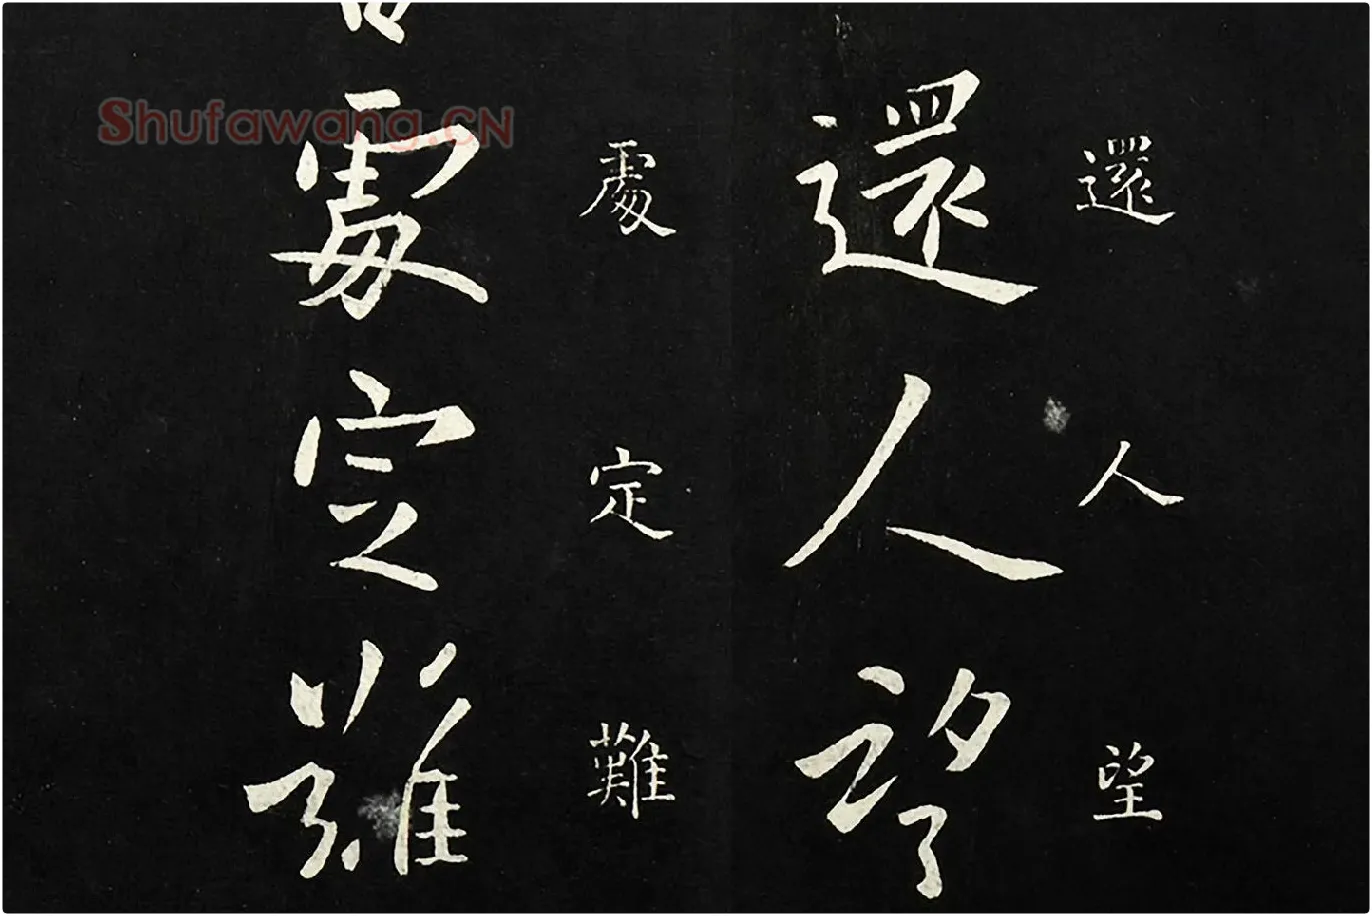 還人望
還人望
處定難
處定難
Shufawang.CN